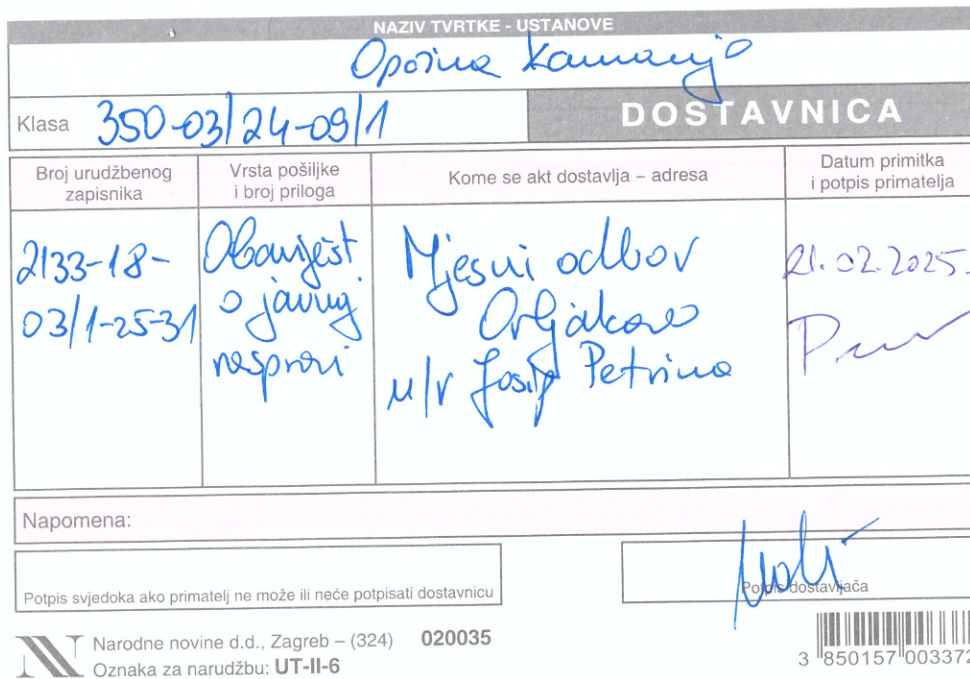 NAZIV TVRTKE - USTANOVE
Općina Kamanje
Klasa 350-03/24-09/1
DOSTAVNICA
Broj urudžbenog
zapisnika
Vrsta pošiljke
i broj priloga
Kome se akt dostavlja – adresa
Datum primitka
i potpis primatelja
2133-18-
03/1-25-31
Obavijest
o javnoj
raspravi
Mjesni odbor
Orljakovo
n/r Josip Petrina
21.02.2025.
Napomena:
Potpis svjedoka ako primatelj ne može ili neće potpisati dostavnicu
Potpis dostavljača
Narodne novine d.d., Zagreb – (324) 020035
Oznaka za narudžbu: UT-II-6
3 850157 003372